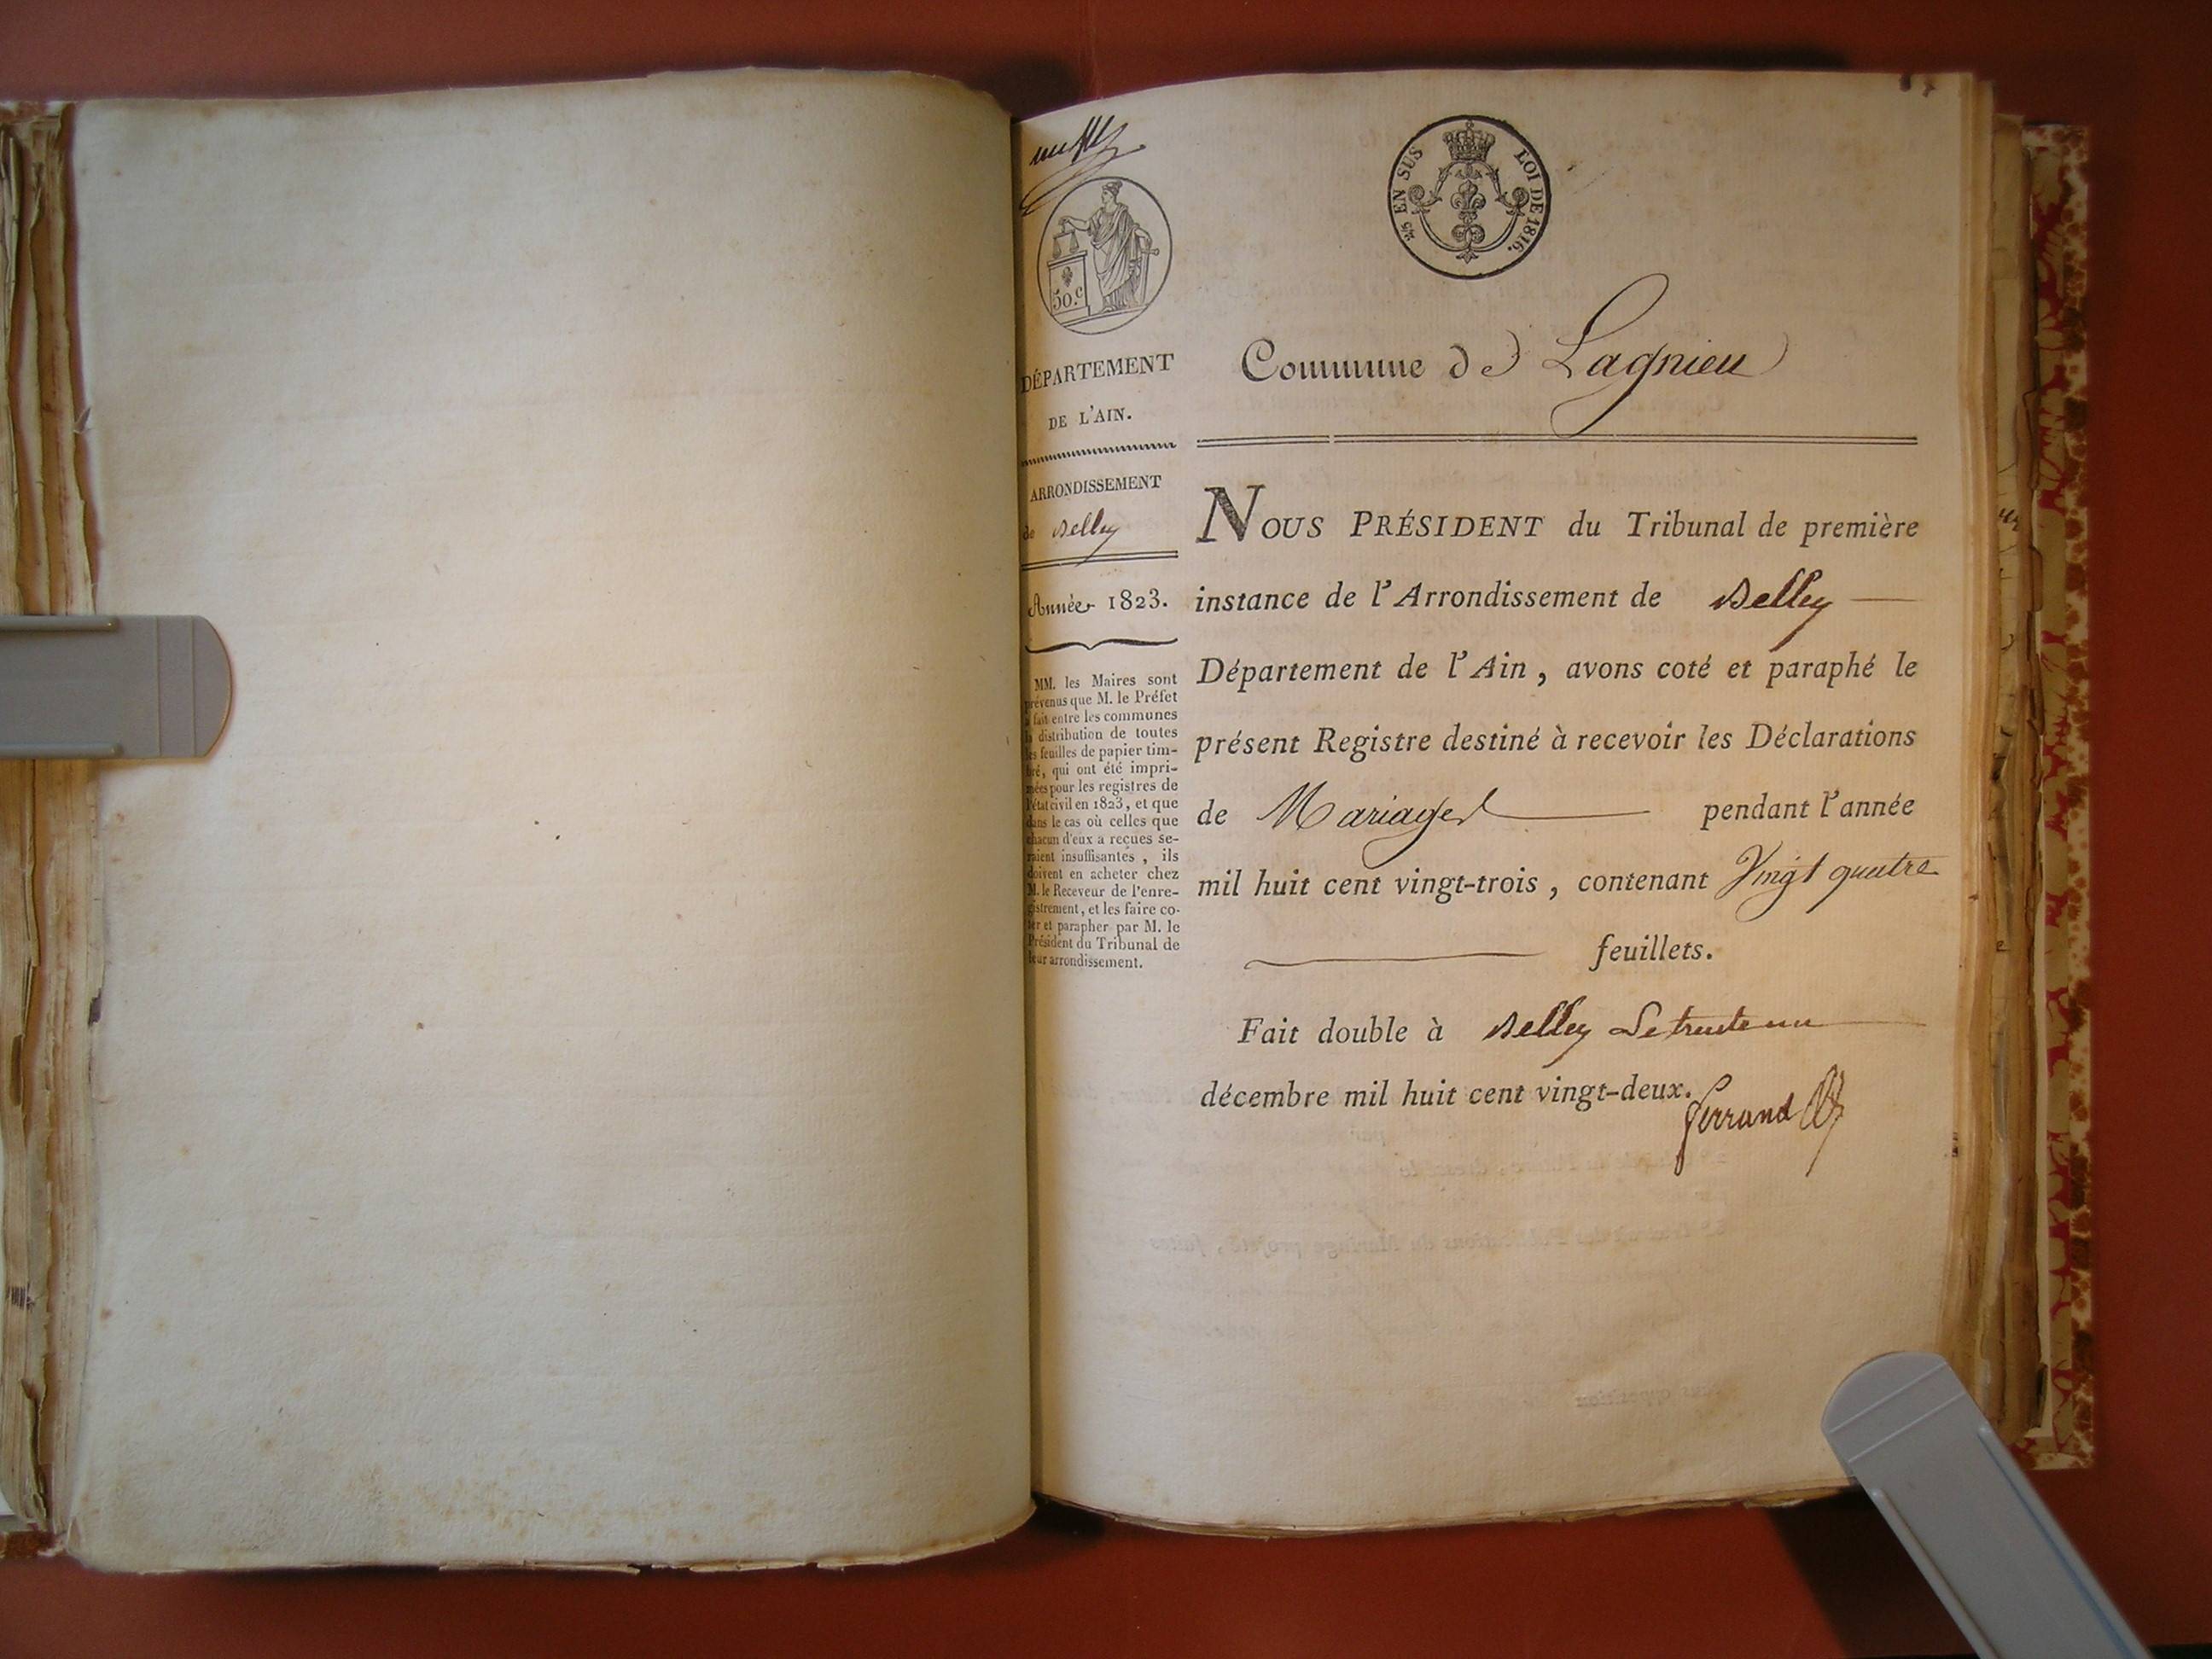 50.c
2/5 EN SUS LOI DE 1816.
DÉPARTEMENT
DE L'AIN.
ARRONDISSEMENT
de Belley
Année 1823.
MM. les Maires sont
prévenus que M. le Préfet
a fait entre les communes
la distribution de toutes
les feuilles de papier tim-
bré, qui ont été impri-
mées pour les registres de
l'état civil en 1823, et que
dans le cas où celles que
chacun d'eux a reçues se-
raient insuffisantes, ils
doivent en acheter chez
M. le Receveur de l'enre-
gistrement, et les faire co-
ter et parapher par M. le
Président du Tribunal de
leur arrondissement.
Commune de Lagnieu
NOUS PRÉSIDENT du Tribunal de première
instance de l'Arrondissement de Belley
Département de l'Ain, avons coté et paraphé le
présent Registre destiné à recevoir les Déclarations
de Mariages pendant l'année
mil huit cent vingt-trois, contenant Vingt quatre
feuillets.
Fait double à Belley Le trente un
décembre mil huit cent vingt-deux.
ferrand